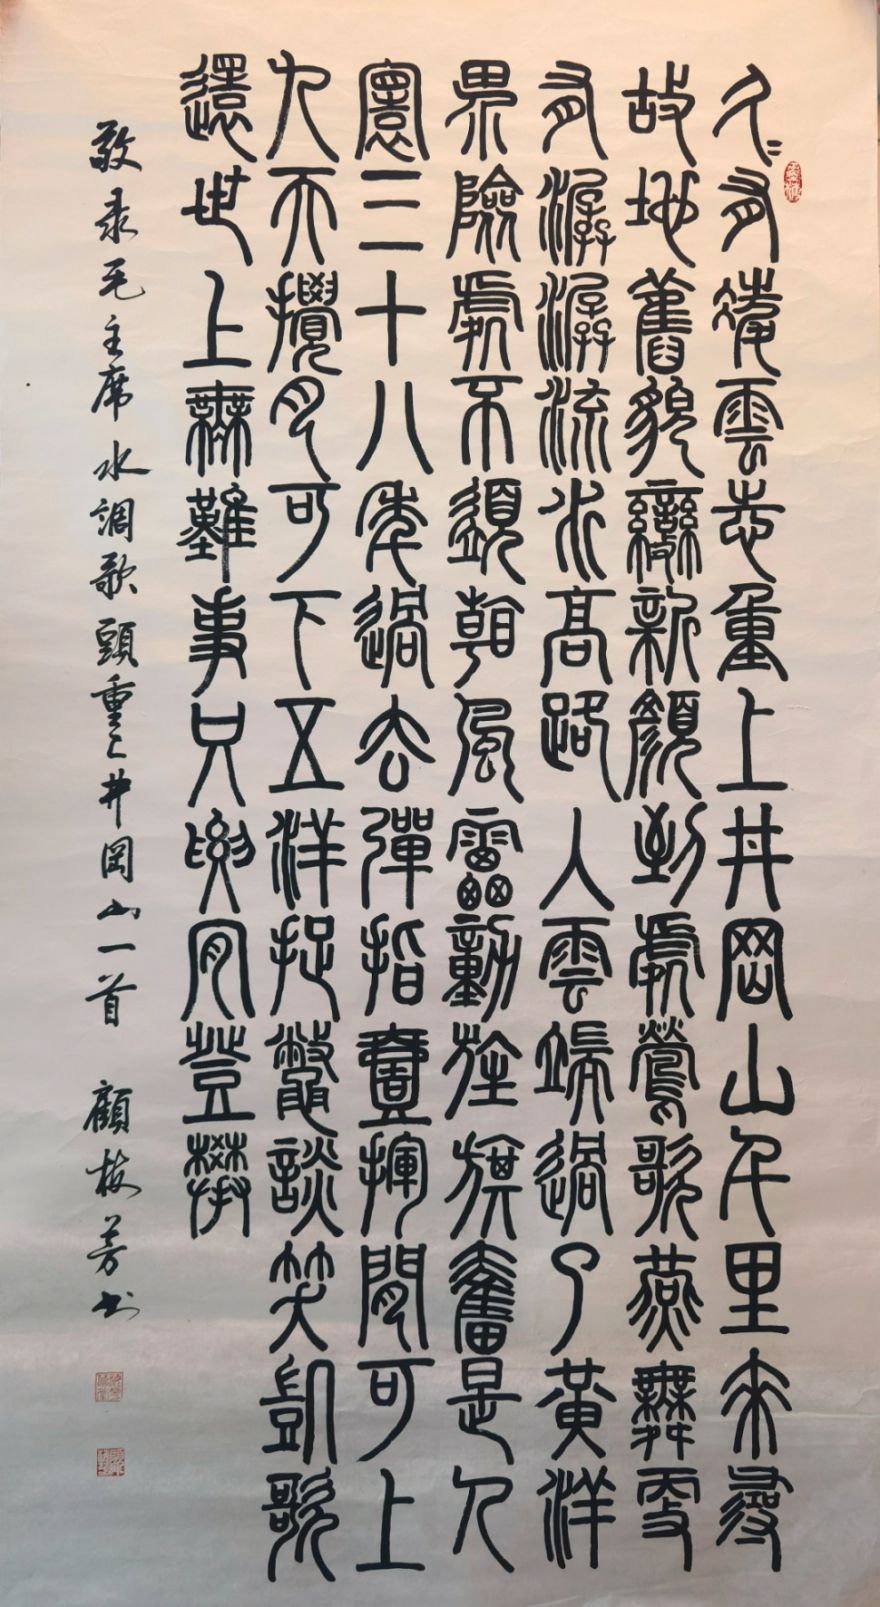 久〻有凌雲志重上井岡山千里來尋
故地舊貌變新顏到處鶯歌燕舞更
有潺潺流水高路入雲端過了黃洋
界險處不須看風雷動旌旗奮是人
寰三十八年過去彈指壹揮間可上
九天攬月可下五洋捉鱉談笑凱歌
還世上無難事只要肯登攀
敬录毛主席水調歌頭重上井岡山一首 顧枝芳书